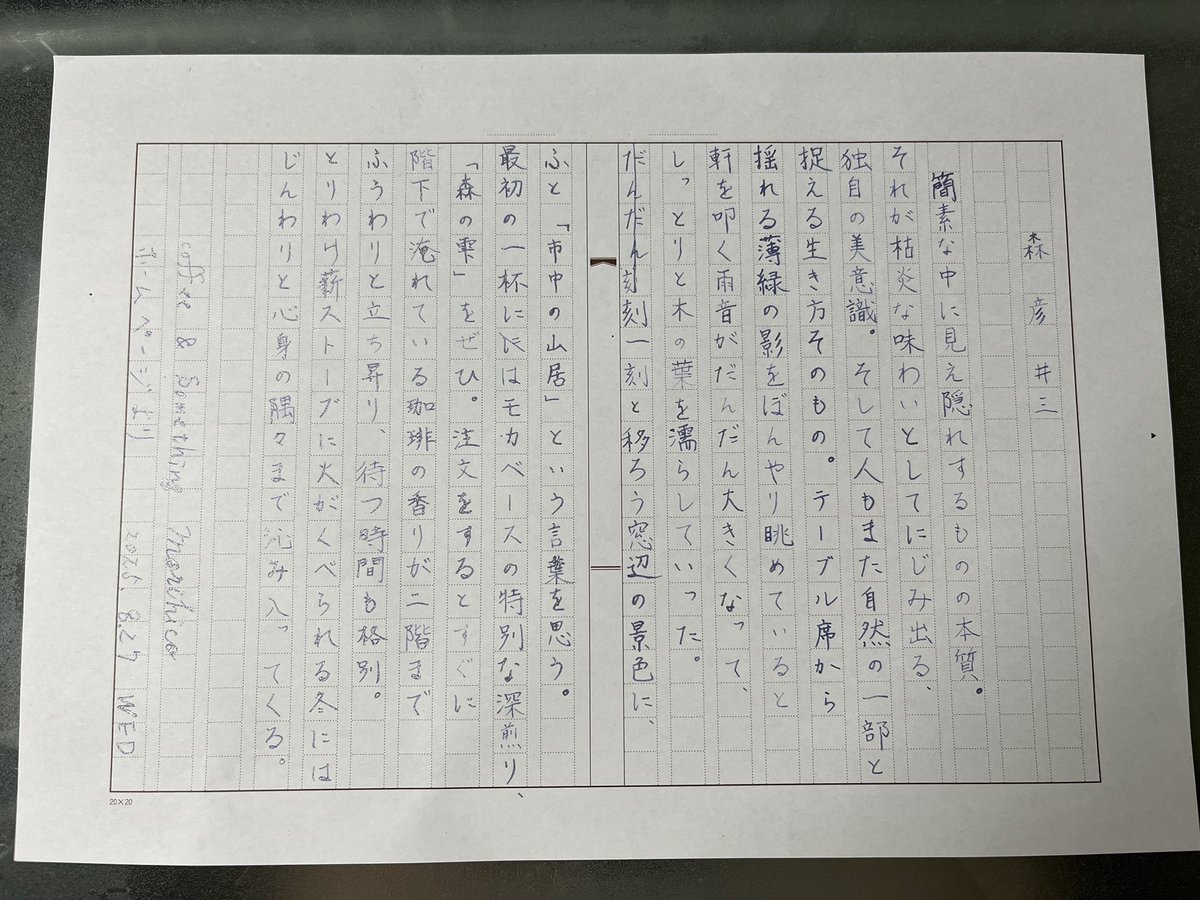 森彦 井三
簡素な中に見え隠れするものの本質。
それが枯炎な味わいとしてにじみ出る、
独自の美意識。そして人もまた自然の一部と
捉える生き方そのもの。テーブル席から
揺れる薄緑の影をぼんやり眺めていると
軒を叩く雨音がだんだん大きくなって、
しっとりと木の葉を濡らしていった。
だんだん刻刻一刻と移ろう窓辺の景色に、
ふと「市中の山居」という言葉を思う。
最初の一杯ににはモカベースの特別な深煎り、
「森の雫」をぜひ。注文をするとすぐに
階下で淹れている珈琲の香りが二階まで
ふうわりと立ち昇り、待つ時間も格別。
とりわけ薪ストーブに火がくべられる冬には
じんわりと心身の隅々まで沁み入ってくる。
coffee & Something Morihico
ホームページより 2025. 8.27 WED
20×20